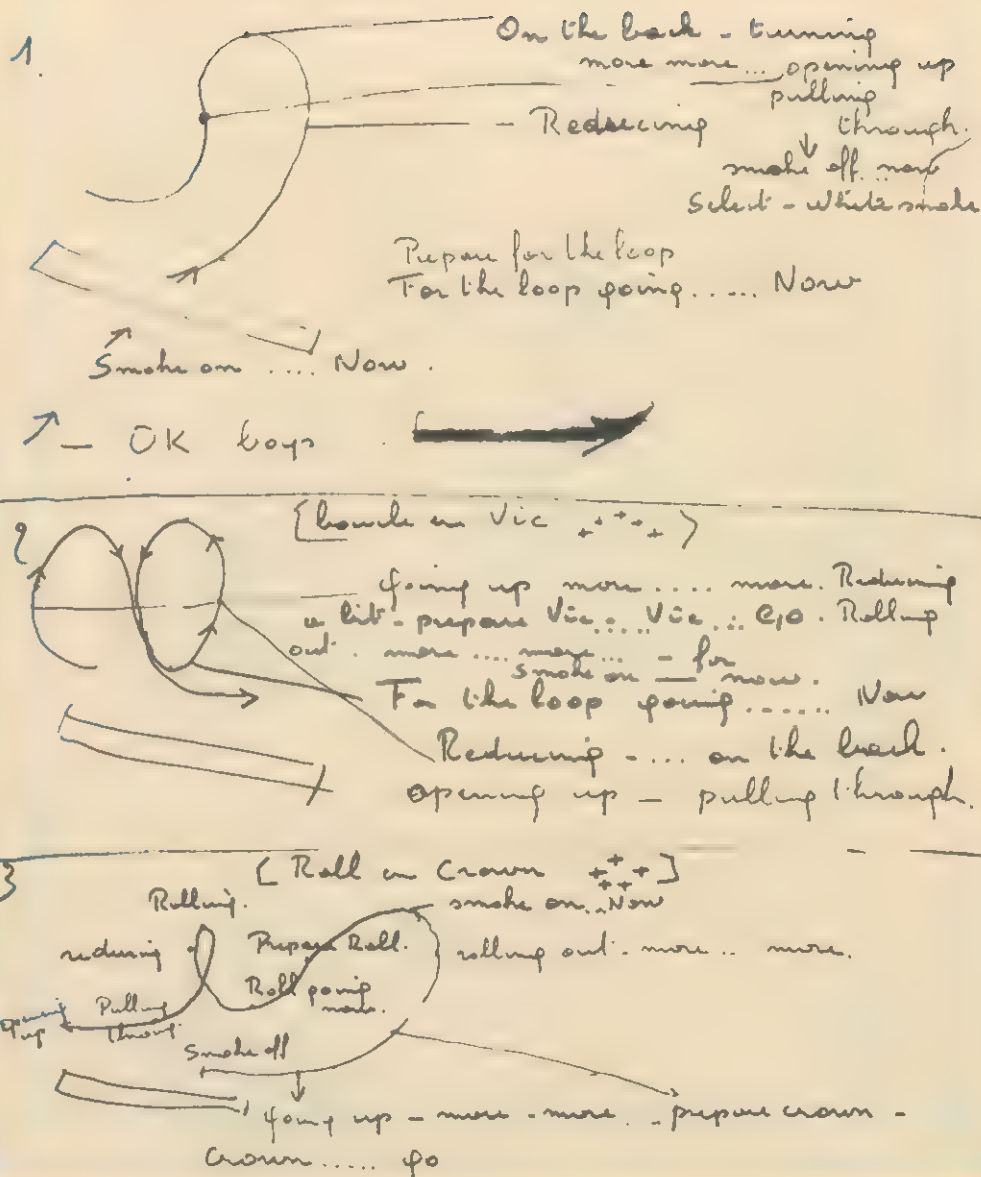 1.
On the back - turning
more more ... opening up
pulling
through.
- Reducing
smoke off.. now
Select - white smoke
Prepare for the loop
For the loop going ..... Now
Smoke on .... Now.
- OK boys
2
[boucle en Vic + + + + +]
going up more .... more. Reducing
a bit - prepare Vic .... Vic ... Go. Rolling
out. more .... more ... - for
smoke on — now.
For the loop going ....... Now
Reducing - ... on the back.
opening up - pulling through.
3
[Roll en Crown + + + + +]
Rolling.
smoke on.. Now
reducing
Prepare Roll.
rolling out - more .. more.
Roll going
now.
opening
up
Pulling
Smoke off
going up - more - more .. prepare crown -
Crown ..... go